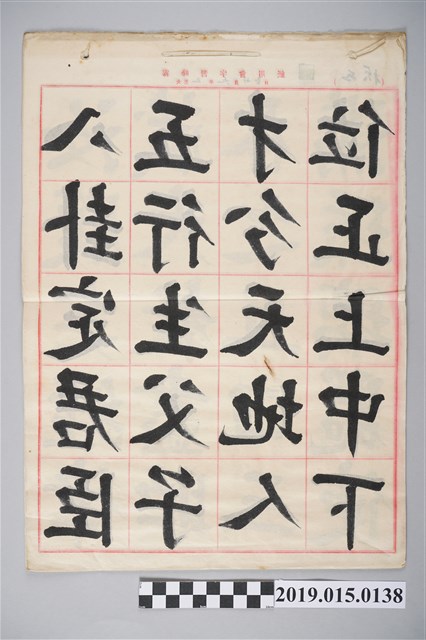 位正上中下
才分天地人
五行生父子
八卦定君臣
2019.015.0138